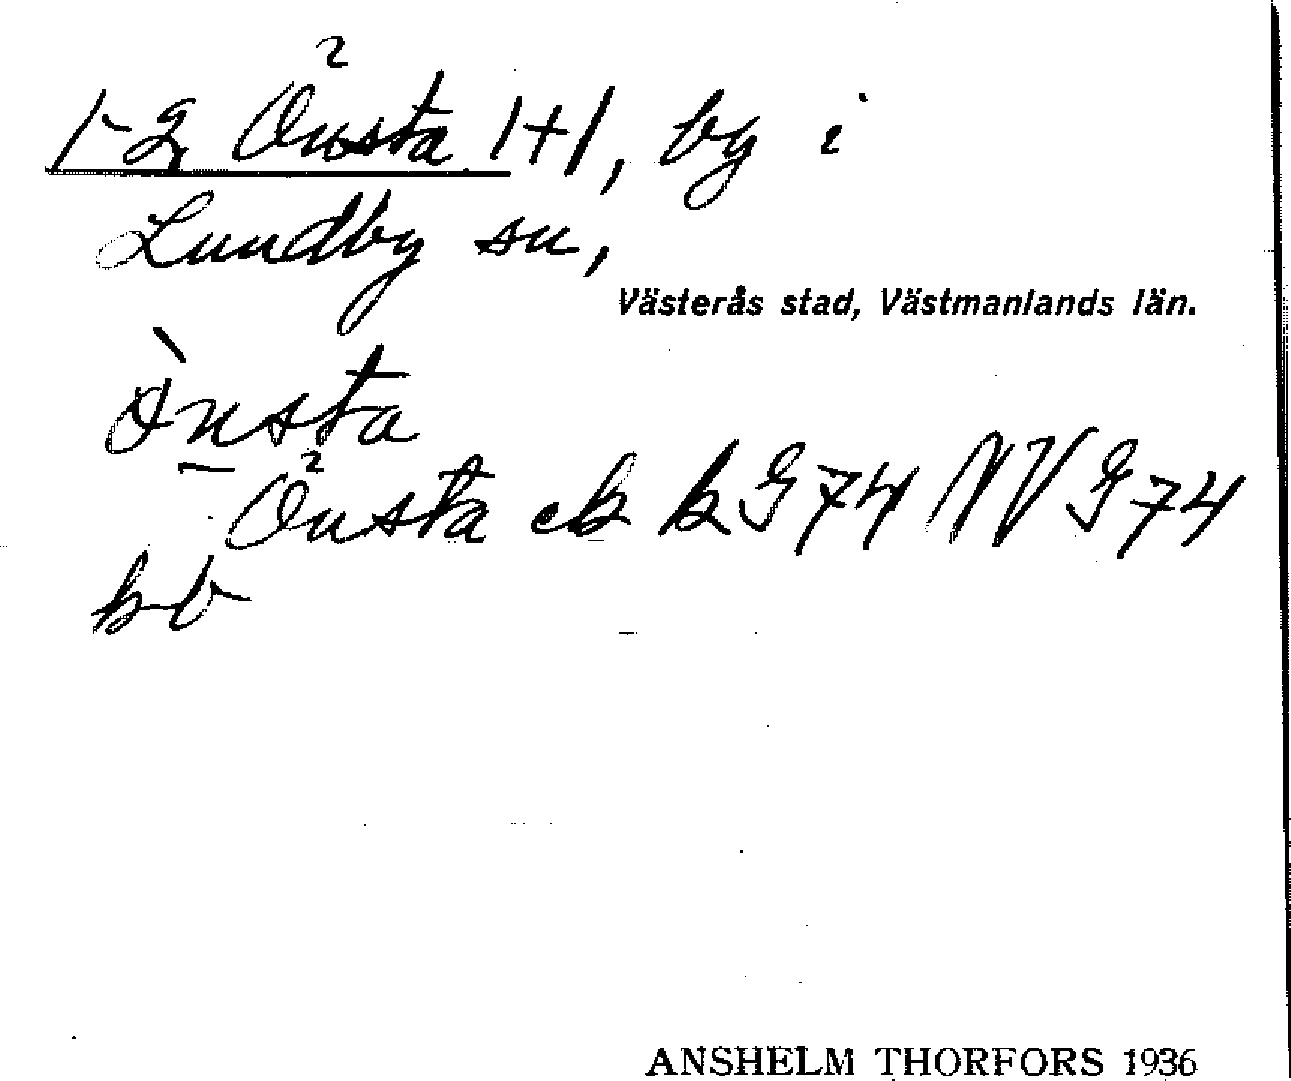 1-2 Önsta 1+1, by i
Lundby sn,
Västerås stad, Västmanlands län.
Önsta
Önsta ek kG74 NV G74
bb
ANSHELM THORFORS 1936